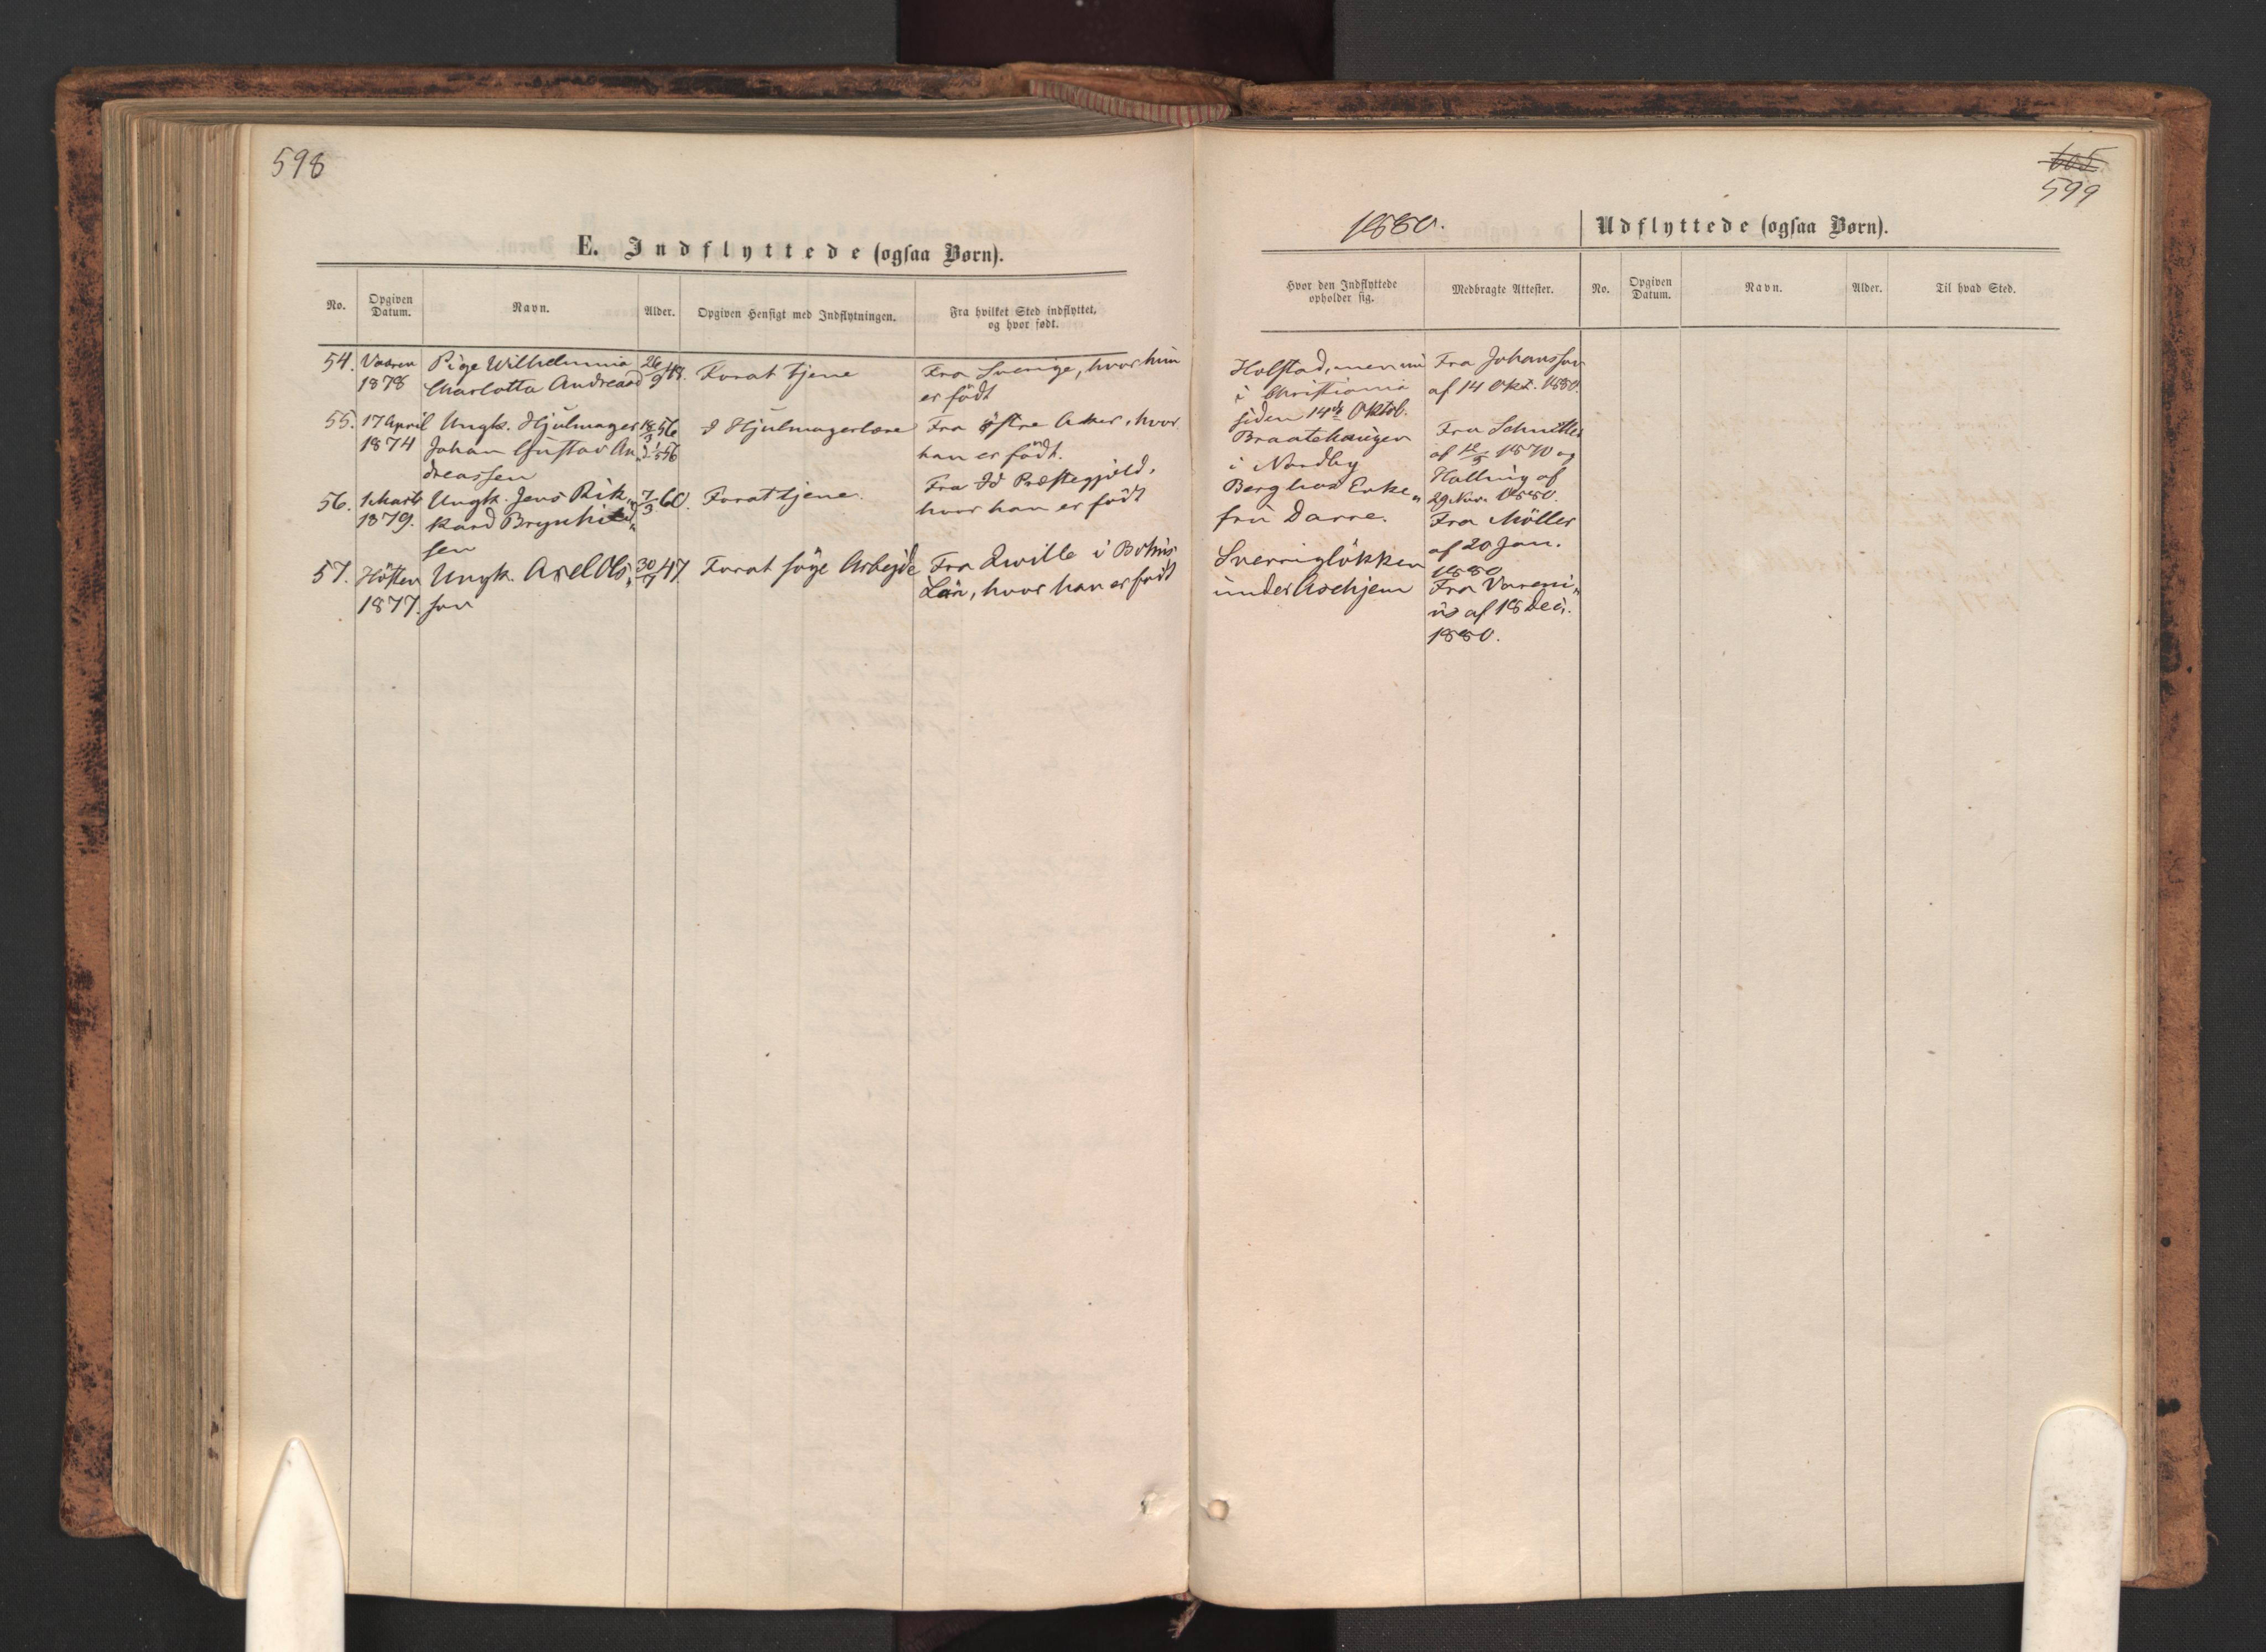 598
E. Indflyttede (ogsaa Børn).
No.
Opgiven
Datum.
Navn.
Alder.
Opgiven Hensigt med Indflytningen.
Fra hvilket Sted indflyttet,
og hvor født.
54. Vaaren Pige Wilhelmina 26/9 48. Forat tjene Fra Sverige, hvor hun
1878 Charlotta Andreasd er födt
55. 17 April Ungk. Hjulmager 18/3 56 I Hjulmagerlære Fra Østre Aker, hvor
1874 Johan Gustav An han er födt.
dreassen
56. 1 Marts Ungk. Jens Rik„ 7/3 60. Forat tjene. Fra Id Præstegjeld,
1879. kard Brynhild„ hvor han er födt
sen
57. Hösten Ungk. Axel Ols„ 30/7 47 Forat söge Arbejde Fra Qwille i Bohus
1877. son Län, hvor han er födt
605
599
1880.
Udflyttede (ogsaa Børn).
Hvor den Indflyttede
opholder sig.
Medbragte Attester.
No.
Opgiven
Datum.
Navn.
Alder.
Til hvad Sted.
Holstad, men nu Fra Johansson
i Christiania af 14 Okt. 1880.
siden 14de Oktob.
Braatehaugen Fra Schnitler
i Nordby af 12/5 1870 og
Berg hos Enke„ Halling af
29 Nov. 1880.
fru Darre. Fra Möller
af 20 Jan.
Sverrigslökken 1880
under Aschjem Fra Vareni„
us af 18 Dec.
1880.